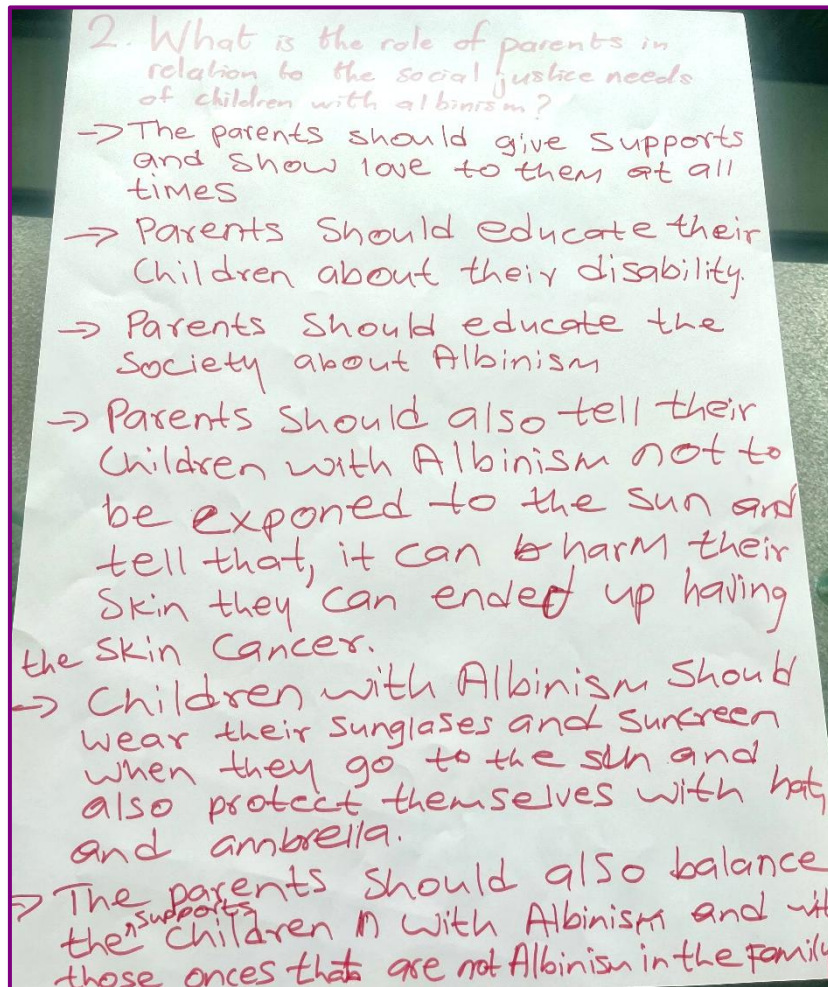 2. What is the role of parents in
relation to the social justice needs
of children with albinism?
-> The parents should give supports
and show love to them at all
times
-> Parents Should educate their
Children about their disability.
-> Parents should educate the
Society about Albinism
-> Parents should also tell their
Children with Albinism not to
be exponed to the sun and
tell that, it can harm their
Skin they can ended up having
the skin Cancer.
-> Children with Albinism should
wear their sunglases and suncreen
when they go to the sun and
also protect themselves with hat,
and annbrella.
-> The parents should also balance
the supports children with Albinism and
those onces that are not Albinism in the Family